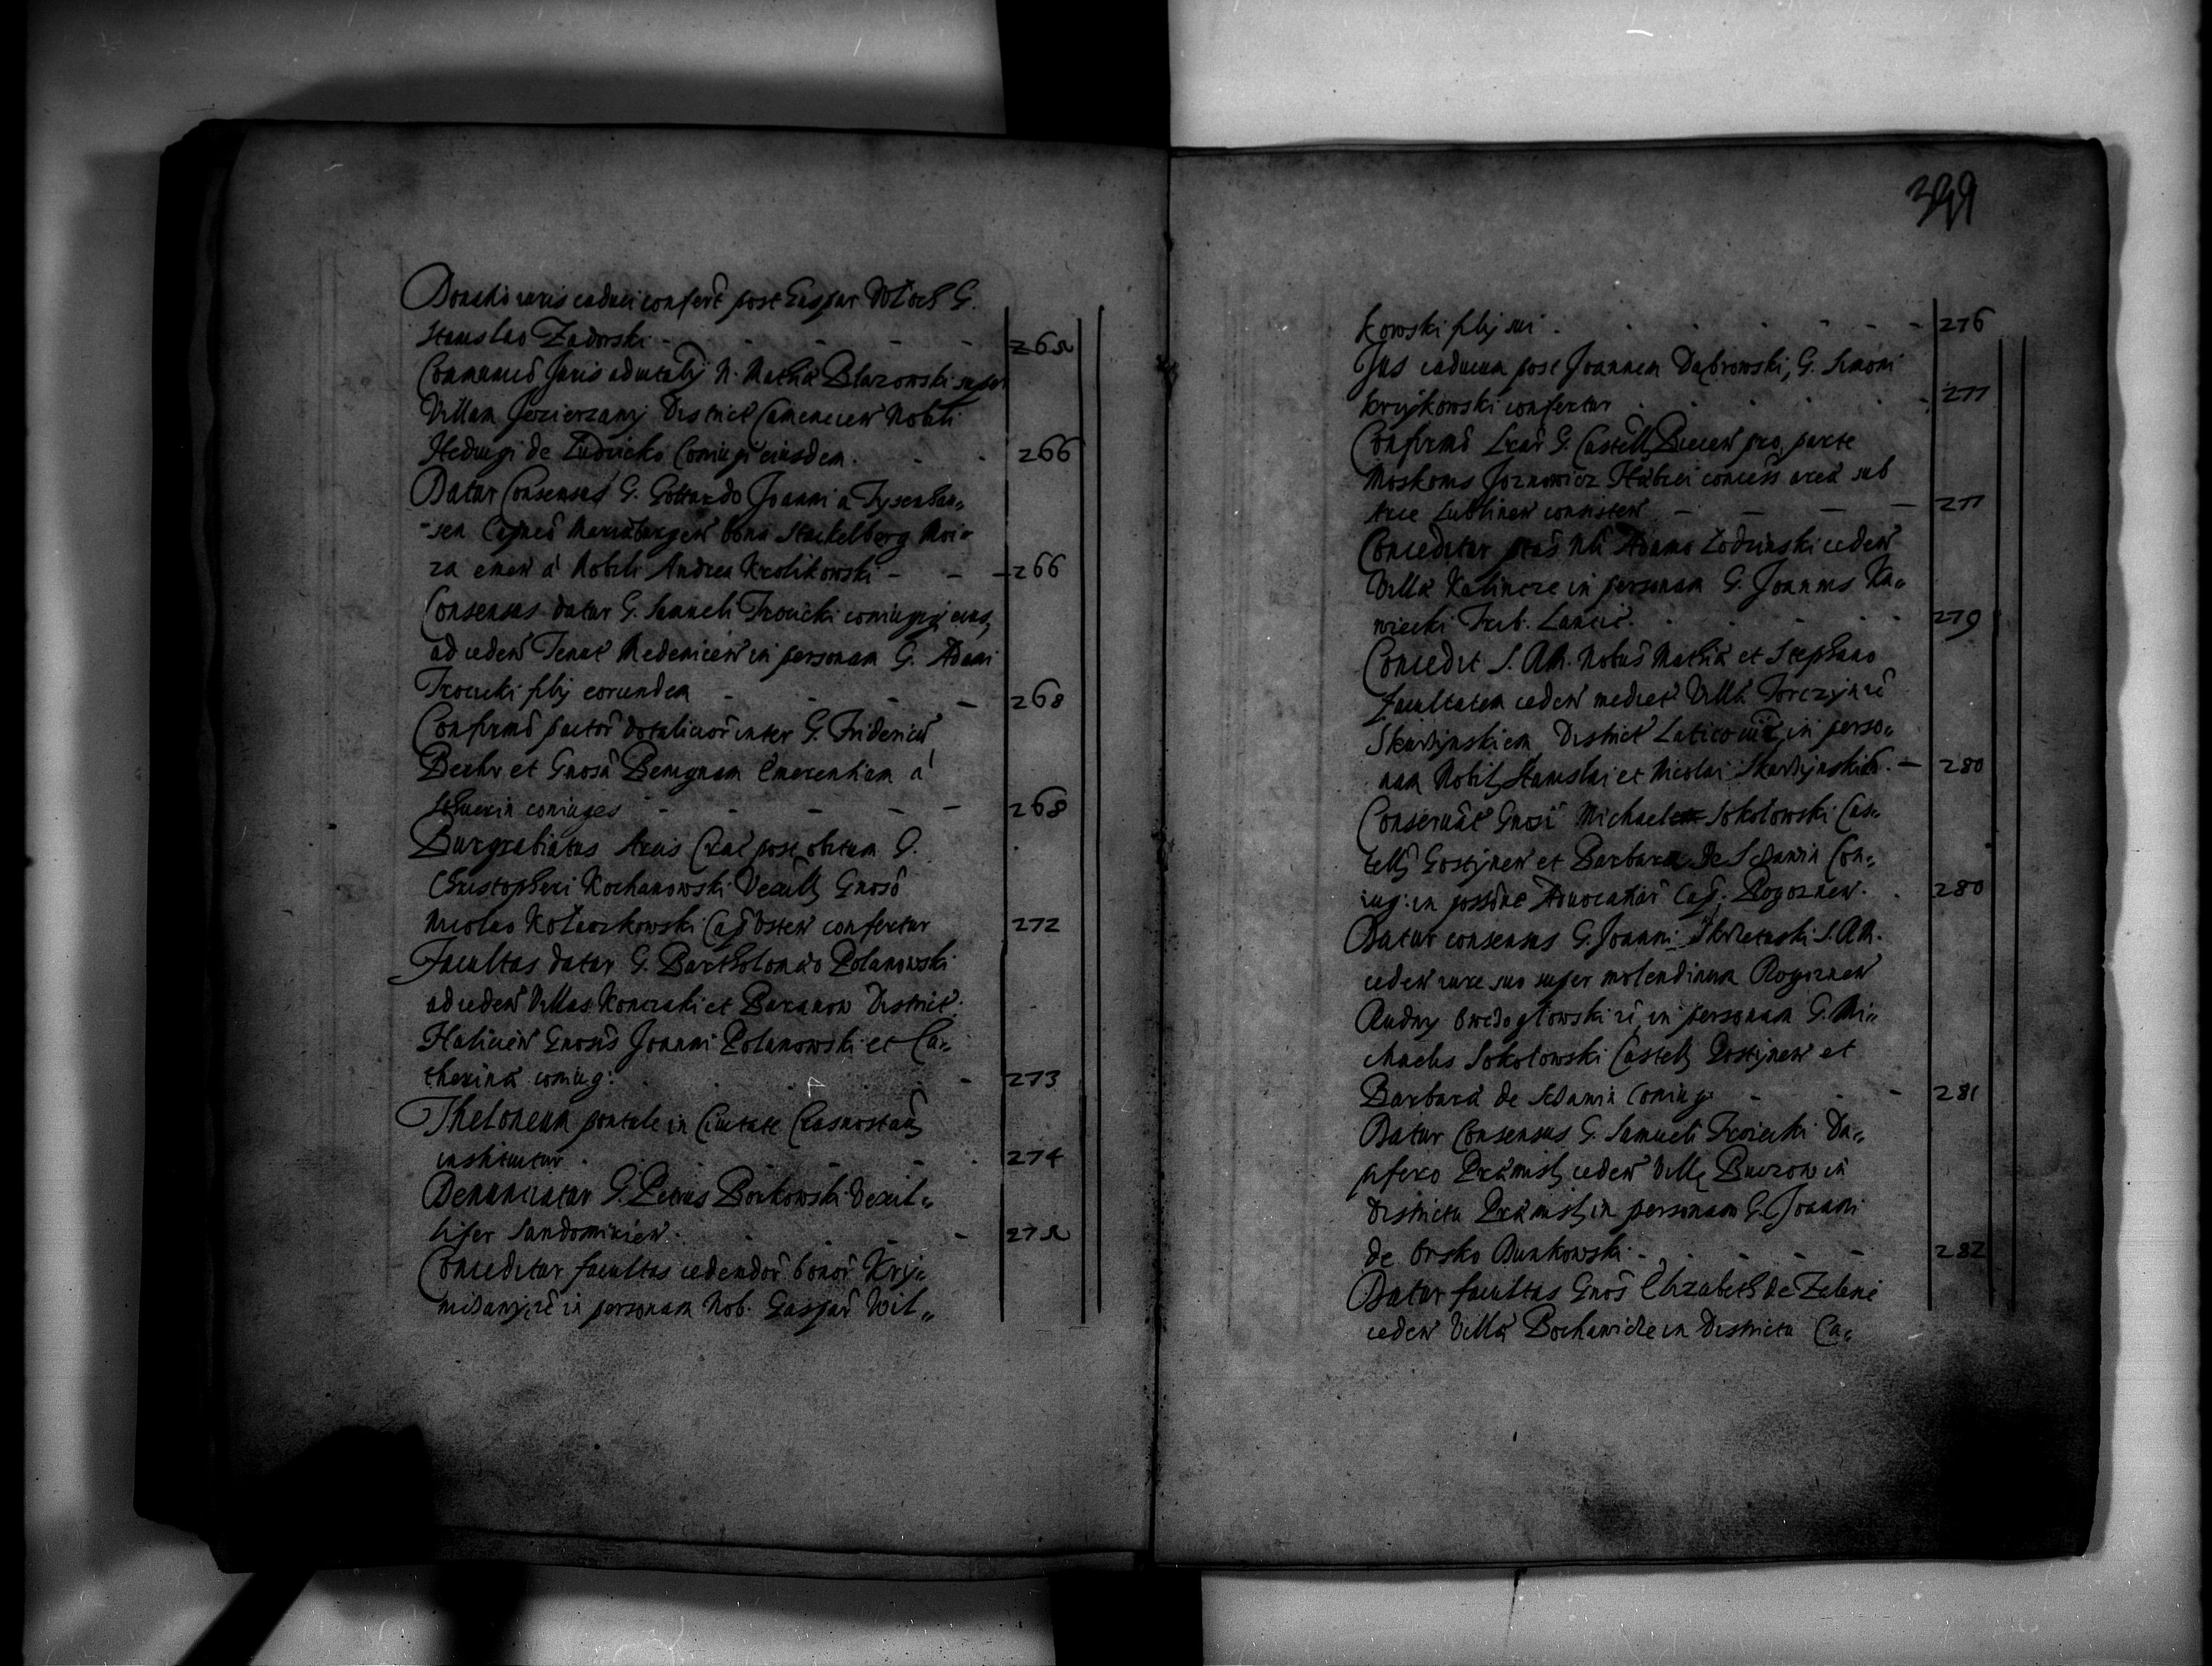 Donatio iuris caduci confert post Gaspar Włoch G.
Stanislao Zadorski - 265
Communio Juris advitalij N. Mathiæ Błazowski super
Villam Jezierzany District Camenecen Nobili
Hedvigi de Zudvicko Coniugi eiusdem. 266
Datur Consensus G. Gottardo Joanni a Tysenhau„
-sen Capneo Marienburgen bona Stackelberg Moi„
za emen à Nobili Andrea Krolikowski - - 266
Consensus datur G. Samueli Troiecki coniugiq eius,
ad ceden Tenut Medenicen in personam G. Adami
Troiecki filij eorundem - 268
Confirmo pactor dotalicior inter G. Fridericu
Beehr et Gnosa Benignam Emerentiam à
Schuerin coniuges - 268
Burgrabiatus Arcis Crac post obitum G.
Christopheri Kochanowski Vexill Gnoso
Nicolao Kołaczkowski Cap Osten confertur 272
Facultas datur G. Bartholomæo Polanowski
ad ceden Villas Konczaki et Baranow District.
Halicien Gnosis Joanni Polanowski et Ca„
therinæ coniug: - 273
Theloneum pontale in Civitate Crasnostau
instituitur . 274
Denunciatur G. Petrus Borkowski Vexil„
lifer Sandomirien. - 275
Conceditur facultas cedendor bonor Kry„
in personam Nob. Gaspar Wil„
399
kowski filij sui . 276
Jus caducum post Joannem Dąbrowski, G. Simoni
Kryjkowski confertur 277
Confirmo Lrar G. Castell Biecen pro parte
Moskoms Joznowicz Hæbrei concess area sub
Arce Lublinen consisten - 277
Conceditur Adamo Łodzinski ceden
Villa Kalincze in personam G. Joannis Ka„
wiecki Trib. Lancic. 279
Concedit S. R. M. Nobus Mathiæ et Stephano
facultatem ceden mediet Villæ Torczyn
Skarżynskiem District Laticovien, in perso„
nam Nobil, Stanislai et Nicolai Skarżynskich. - 280
Conservat Gnosi Michael Sokołowski Cas„
tell Gostijnen et Barbara De Sclavin Con„
iug: in possone Advocatiæ Cap. Rogoznen. 280
Datur consensus G. Joanni Skrzetuski S. R. M.
ceden iure suo super molendinum Rogoznen
Rudny in personam G. Mi„
chaelis Sokołowski Castell Gostijnen et
Barbara de Sclavin Coniug - 281
Datur Consensus G. Samueli Troiecki Da„
pifero Præmisl, ceden Villę Buczow in
districtu Præmisl, in personam G. Joanni
de Orsko Bunkowski . - 282
Datur facultas Gnos Elizabeth de Zalenie
ceden Villæ Bochanicze in Districtu Ca„